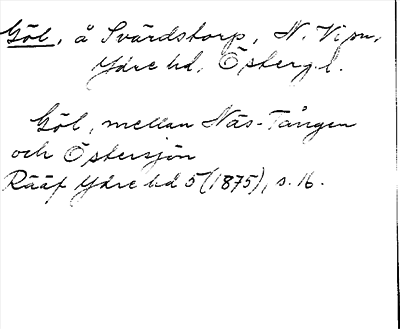 Göl, å Svärdstorp, N. Vi sn,
Ydre hd, Östergl.
Göl, mellan Näs-Tången
och Östersjön
Rääf Ydre hd 5 (1875), s. 16.